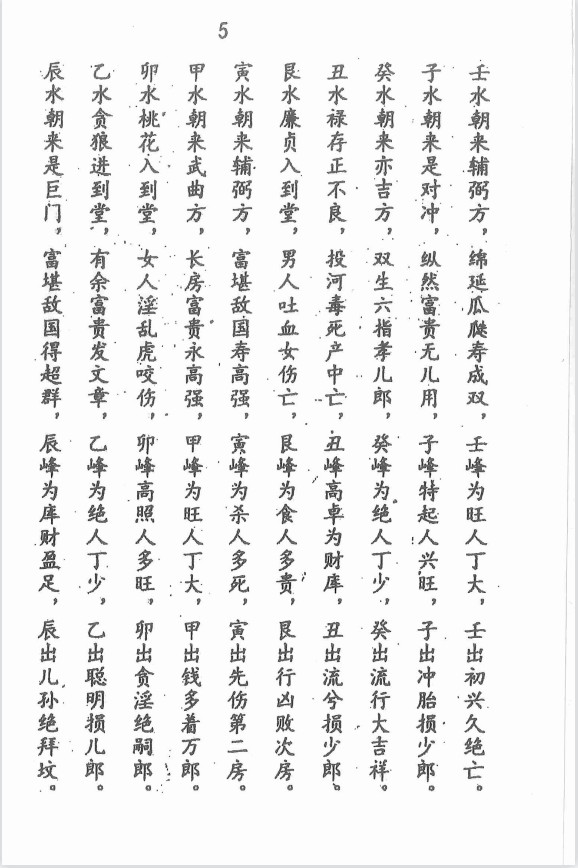 5
壬水朝来辅弼方，绵延瓜瓞寿成双，壬峰为旺人丁大，壬出初兴久绝亡。
子水朝来是对冲，纵然富贵无儿用，子峰特起人兴旺，子出冲胎损少郎。
癸水朝来亦吉方，双生六指孝儿郎，癸峰为绝人丁少，癸出流行大吉祥。
丑水禄存正不良，投河毒死产中亡，丑峰高卓为财库，丑出流兮损少郎。
艮水廉贞入到堂，男人吐血女伤亡，艮峰为食人多贵，艮出行凶败次房。
寅水朝来辅弼方，富堪敌国寿高强，寅峰为杀人多死，寅出先伤第二房。
甲水朝来武曲方，长房富贵永高强，甲峰为旺人丁大，甲出钱多着万郎。
卯水桃花入到堂，女人淫乱虎咬伤，卯峰高照人多旺，卯出贪淫绝嗣郎。
乙水贪狼进到堂，有余富贵发文章，乙峰为绝人丁少，乙出聪明损儿郎。
辰水朝来是巨门，富堪敌国得超群，辰峰为库财盈足，辰出儿孙绝拜坟。